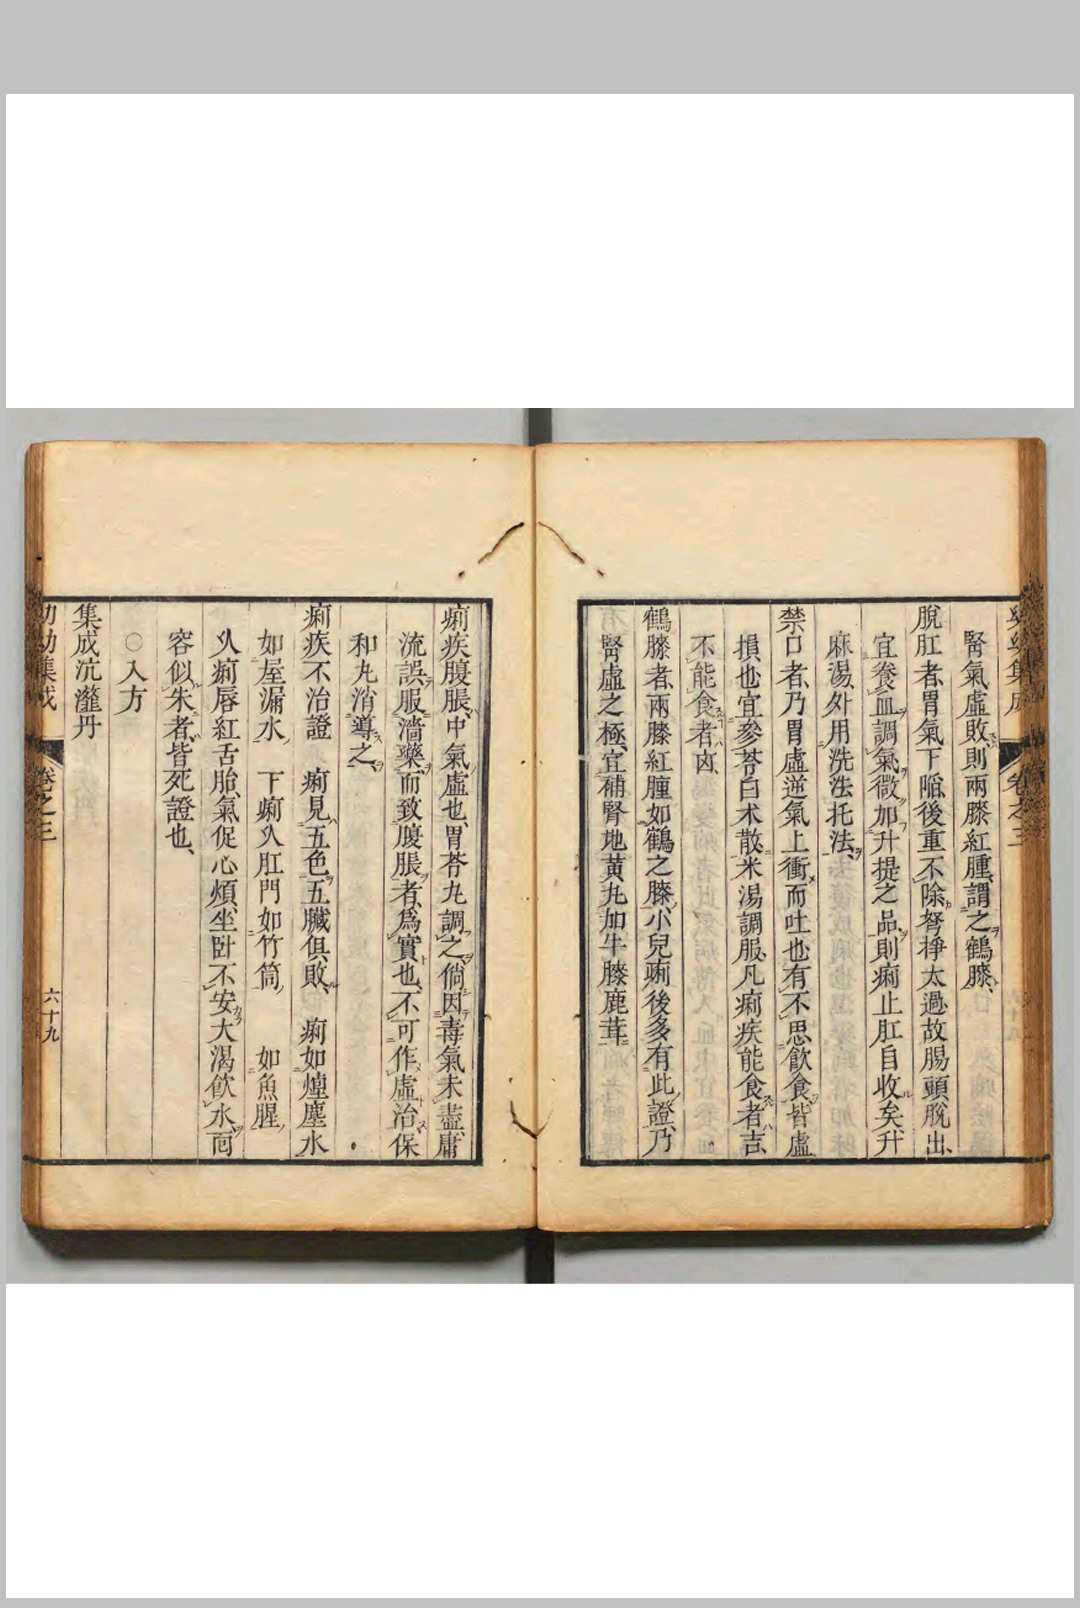 幼幼集成 卷之三
腎氣虛敗、則兩膝紅腫、謂之鶴膝、
脫肛者、胃氣下陷、後重不除、努掙太過、故腸頭脫出、
宜養血調氣、微加升提之品、則痢止肛自收矣、升
麻湯、外用洗法托法、
禁口者、乃胃虛逆氣上衝而吐也、有不思飲食、皆虛
損也、宜參苓白朮散、米湯調服、凡痢疾能食者吉、
不能食者凶、
鶴膝者、兩膝紅腫如鶴之膝、小兒痢後多有此證、乃
腎虛之極、宜補腎地黃丸加牛膝鹿茸、
痢疾腹脹、中氣虛也、胃苓丸調之、倘因毒氣未盡、庸
流誤服濇藥、而致腹脹者、爲實也、不可作虛治、保
和丸消導之、
痢疾不治證 痢見五色、五臟俱敗、 痢如煙塵水
如屋漏水 下痢久肛門如竹筒、 如魚腥、
久痢唇紅舌胎、氣促心煩、坐卧不安、大渴飲水、面
容似朱者、皆死證也、
○入方
集成沆瀣丹
幼幼集成 卷之三 六十九